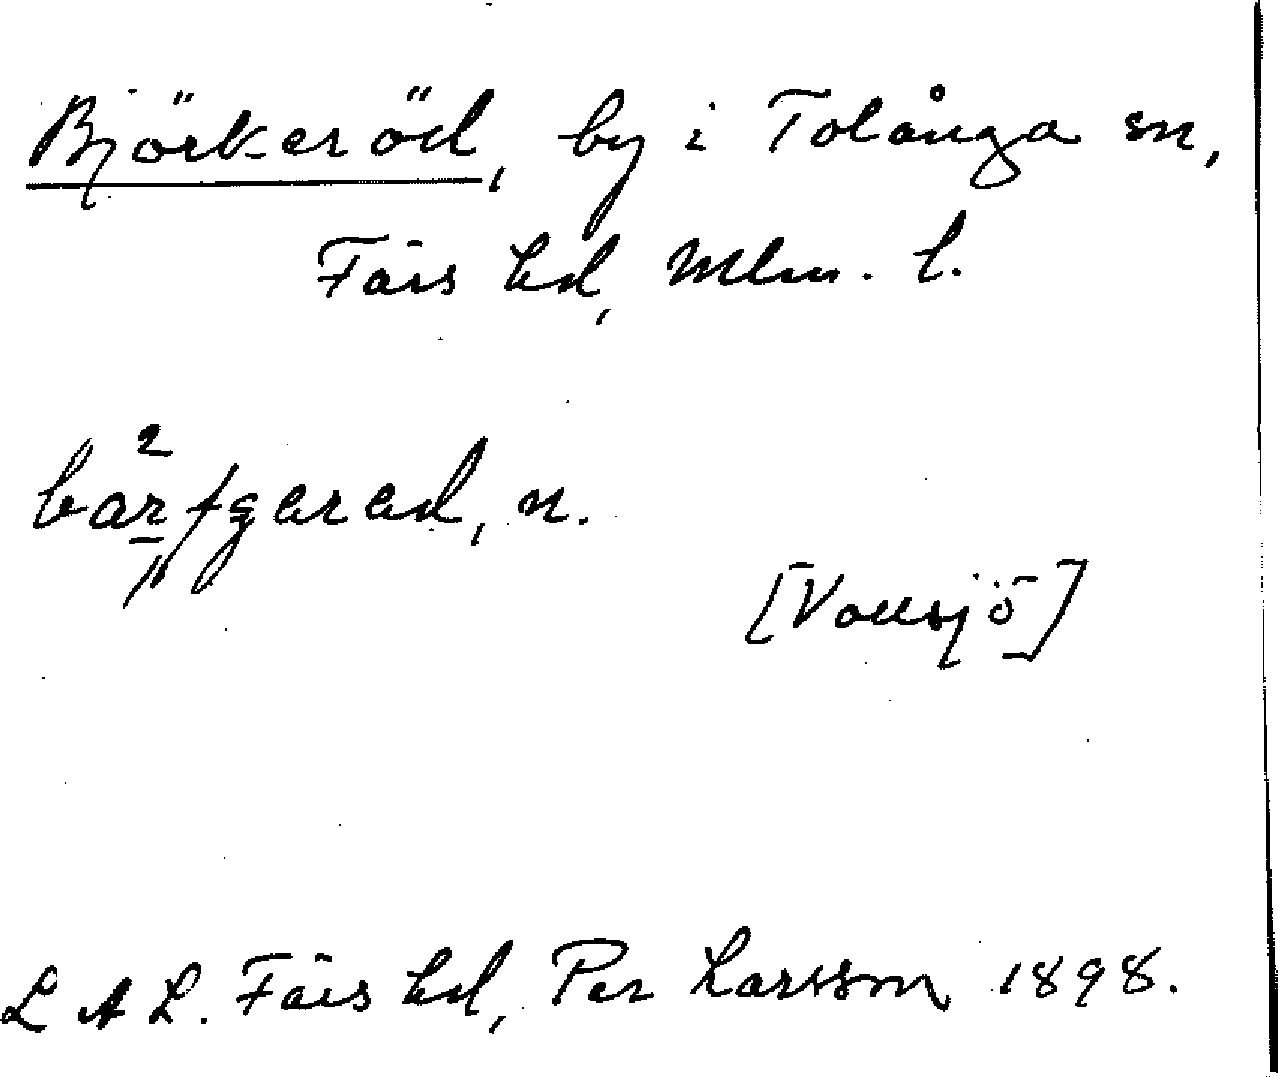 Björkeröd, by i Tolånga sn,
Färs hd, Mlm. l.
n.
[Vollsjö]
L A L. Färs hd, Per Larsson 1898.